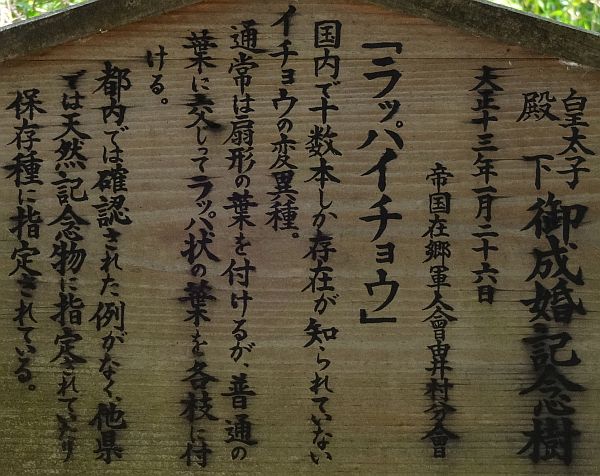 皇太子殿下 御成婚記念樹
大正十三年一月二十六日
帝国在郷軍人會由井村分會
「ラッパイチョウ」
国内で十数本しか存在が知られていない
イチョウの変異種。
通常は扇形の葉を付けるが、普通の
葉に交じってラッパ状の葉を各枝に付
ける。
都内では確認された例がなく、他県
では天然記念物に指定されていたり
保存種に指定されている。